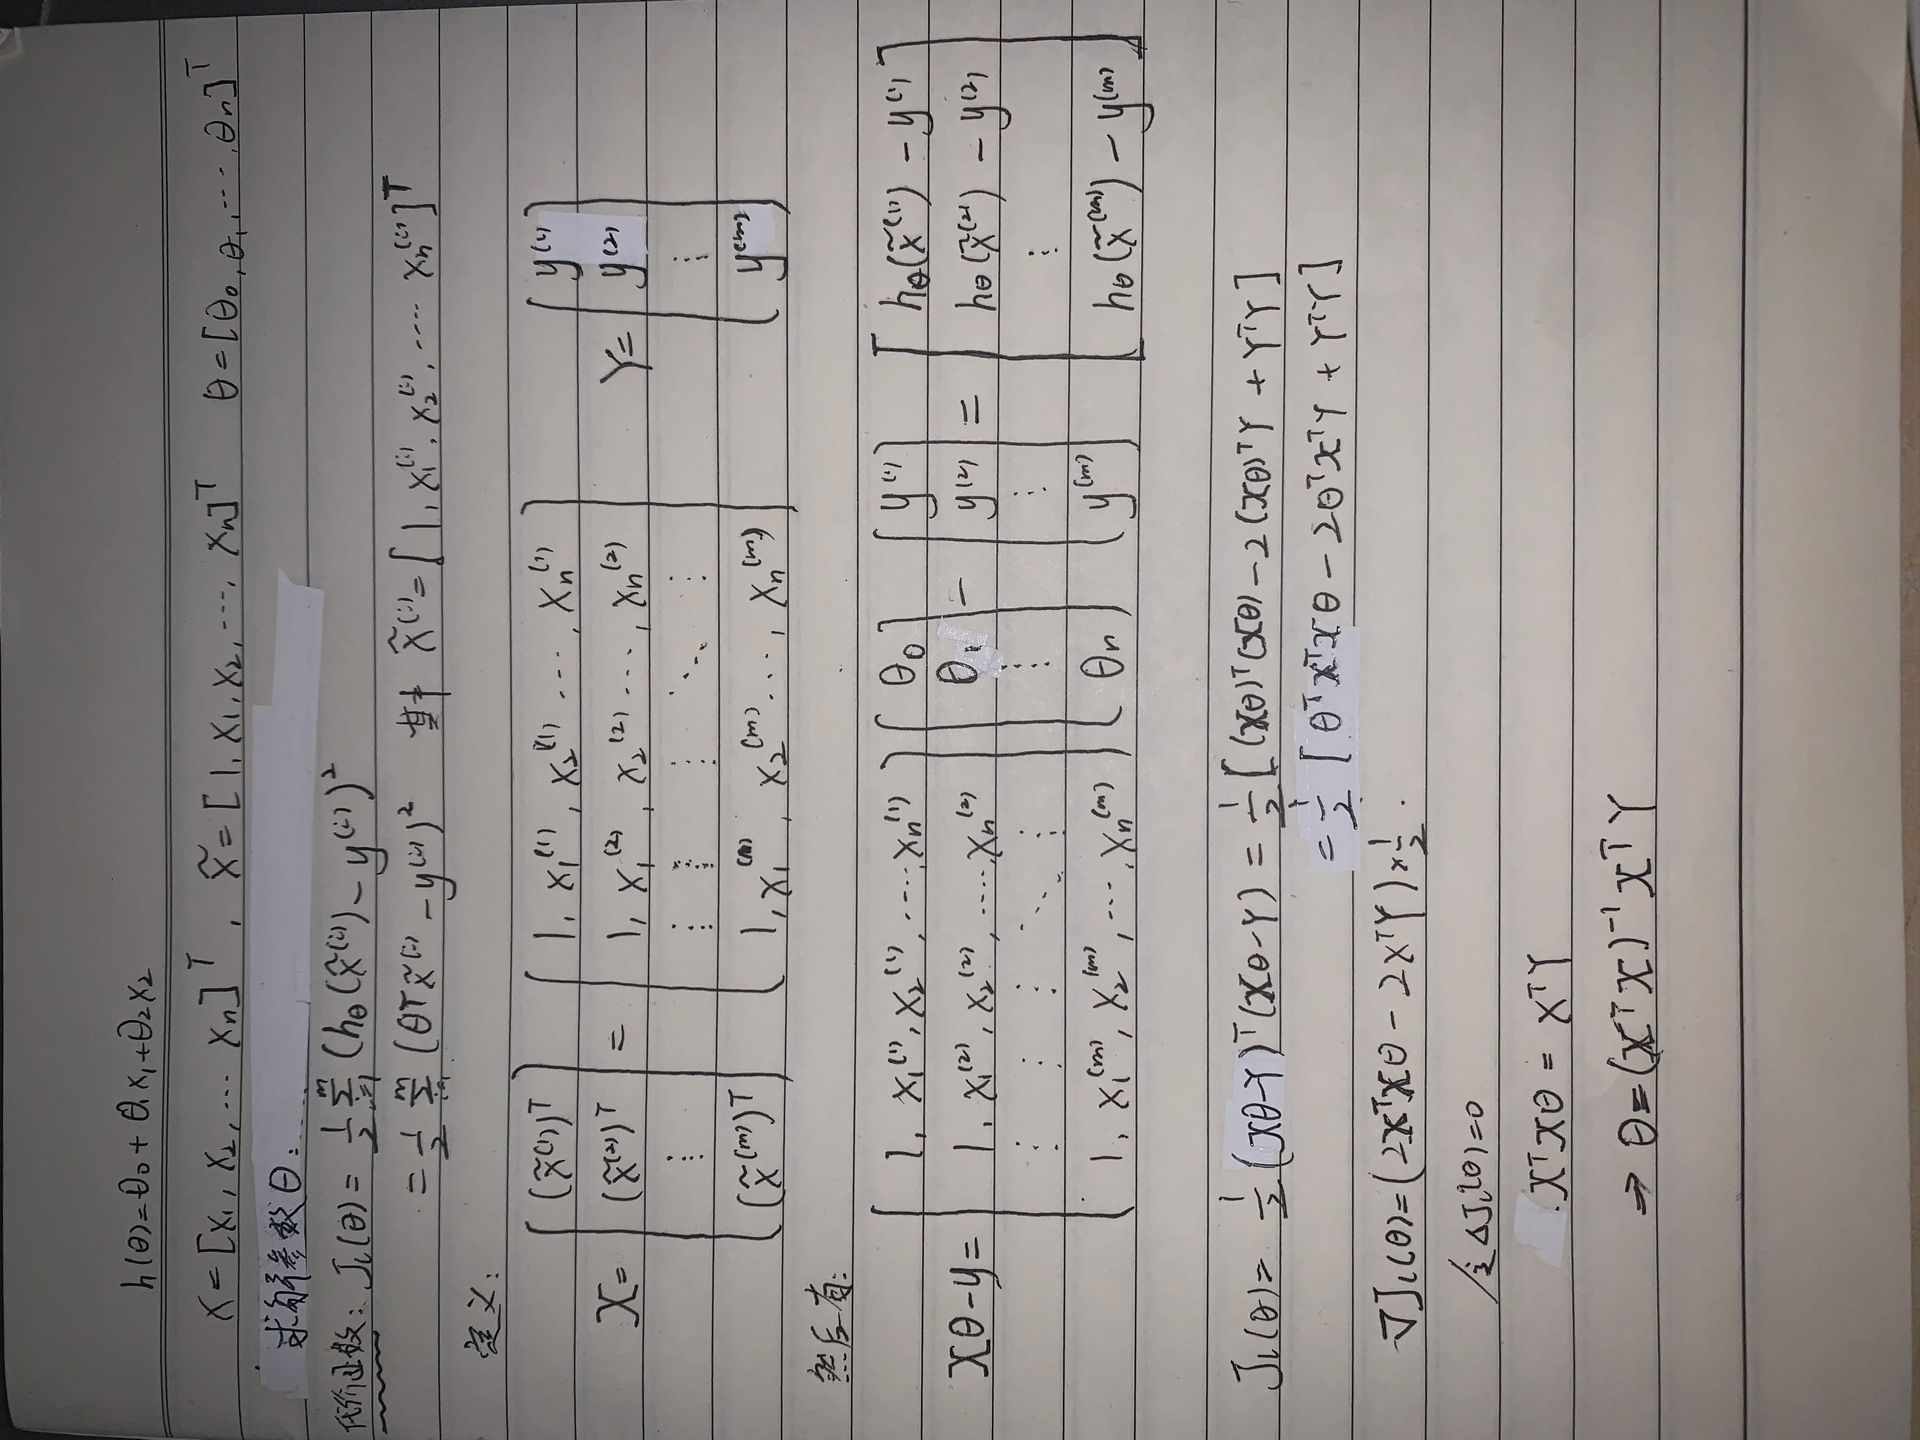 h(θ)=θ₀+θ₁x₁+θ₂x₂
x=[x₁, x₂, ... xₙ]ᵀ, x̃=[1, x₁, x₂, ..., xₙ]ᵀ θ=[θ₀, θ₁, ..., θₙ]ᵀ
求解参数θ:
代价函数: Jₗ(θ) = 1/2 Σᵢ₌₁ᵐ (h_θ(x̃⁽ⁱ⁾) − y⁽ⁱ⁾)²
= 1/2 Σᵢ₌₁ᵐ (θᵀx̃⁽ⁱ⁾ − y⁽ⁱ⁾)² 其中 x̃⁽ⁱ⁾=[1, x₁⁽ⁱ⁾, x₂⁽ⁱ⁾, .... xₙ⁽ⁱ⁾]ᵀ
定义:
X= [(x̃⁽¹⁾)ᵀ (x̃⁽²⁾)ᵀ ⋮ (x̃⁽ᵐ⁾)ᵀ] = [1, x₁⁽¹⁾, x₂⁽¹⁾ ..., xₙ⁽¹⁾ 1, x₁⁽²⁾, x₂⁽²⁾ ..., xₙ⁽²⁾ ⋮ ⋮ ⋮ ⋱ ⋮ 1, x₁⁽ᵐ⁾, x₂⁽ᵐ⁾ ..., xₙ⁽ᵐ⁾] Y= [y⁽¹⁾ y⁽²⁾ ⋮ y⁽ᵐ⁾]
然后有:
Xθ−y= [1, x₁⁽¹⁾, x₂⁽¹⁾, ..., xₙ⁽¹⁾ 1, x₁⁽²⁾, x₂⁽²⁾, ..., xₙ⁽²⁾ ⋮ ⋮ ⋮ ⋱ ⋮ 1, x₁⁽ᵐ⁾, x₂⁽ᵐ⁾, ..., xₙ⁽ᵐ⁾] [θ₀ θ₁ ⋮ θₙ] − [y⁽¹⁾ y⁽²⁾ ⋮ y⁽ᵐ⁾] = [h_θ(x̃⁽¹⁾) − y⁽¹⁾ h_θ(x̃⁽²⁾) − y⁽²⁾ ⋮ h_θ(x̃⁽ᵐ⁾) − y⁽ᵐ⁾]
Jₗ(θ)= 1/2 (Xθ−Y)ᵀ(Xθ−Y) = 1/2 [(Xθ)ᵀ(Xθ) − 2(Xθ)ᵀY + YᵀY]
= 1/2 [θᵀXᵀXθ − 2θᵀXᵀY + YᵀY]
∇Jₗ(θ)=(2XᵀXθ − 2XᵀY)×1/2.
令ΔJₗ(θ)=0
XᵀXθ = XᵀY
⇒ θ=(XᵀX)⁻¹XᵀY